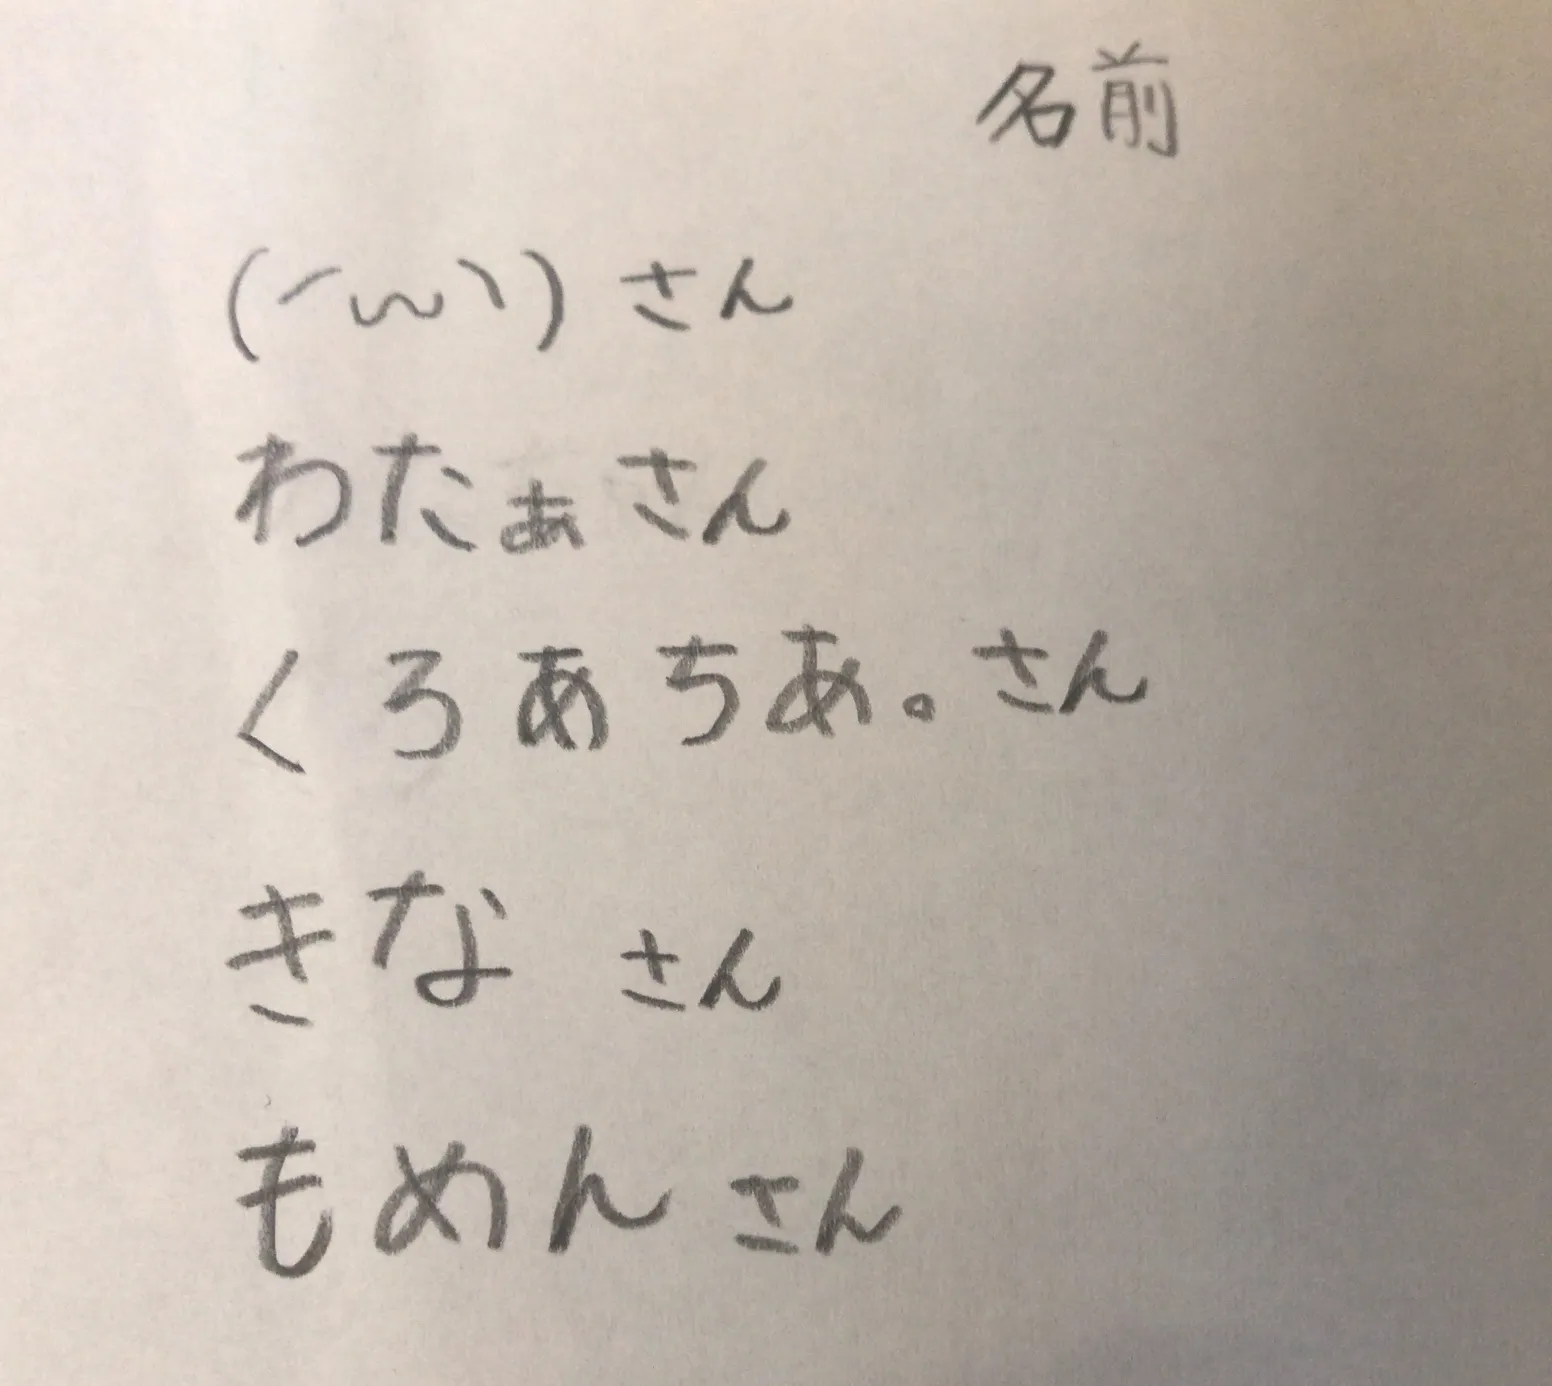 名前
(´ω`)さん
わたぁさん
くろあちあ。さん
きなさん
もめんさん